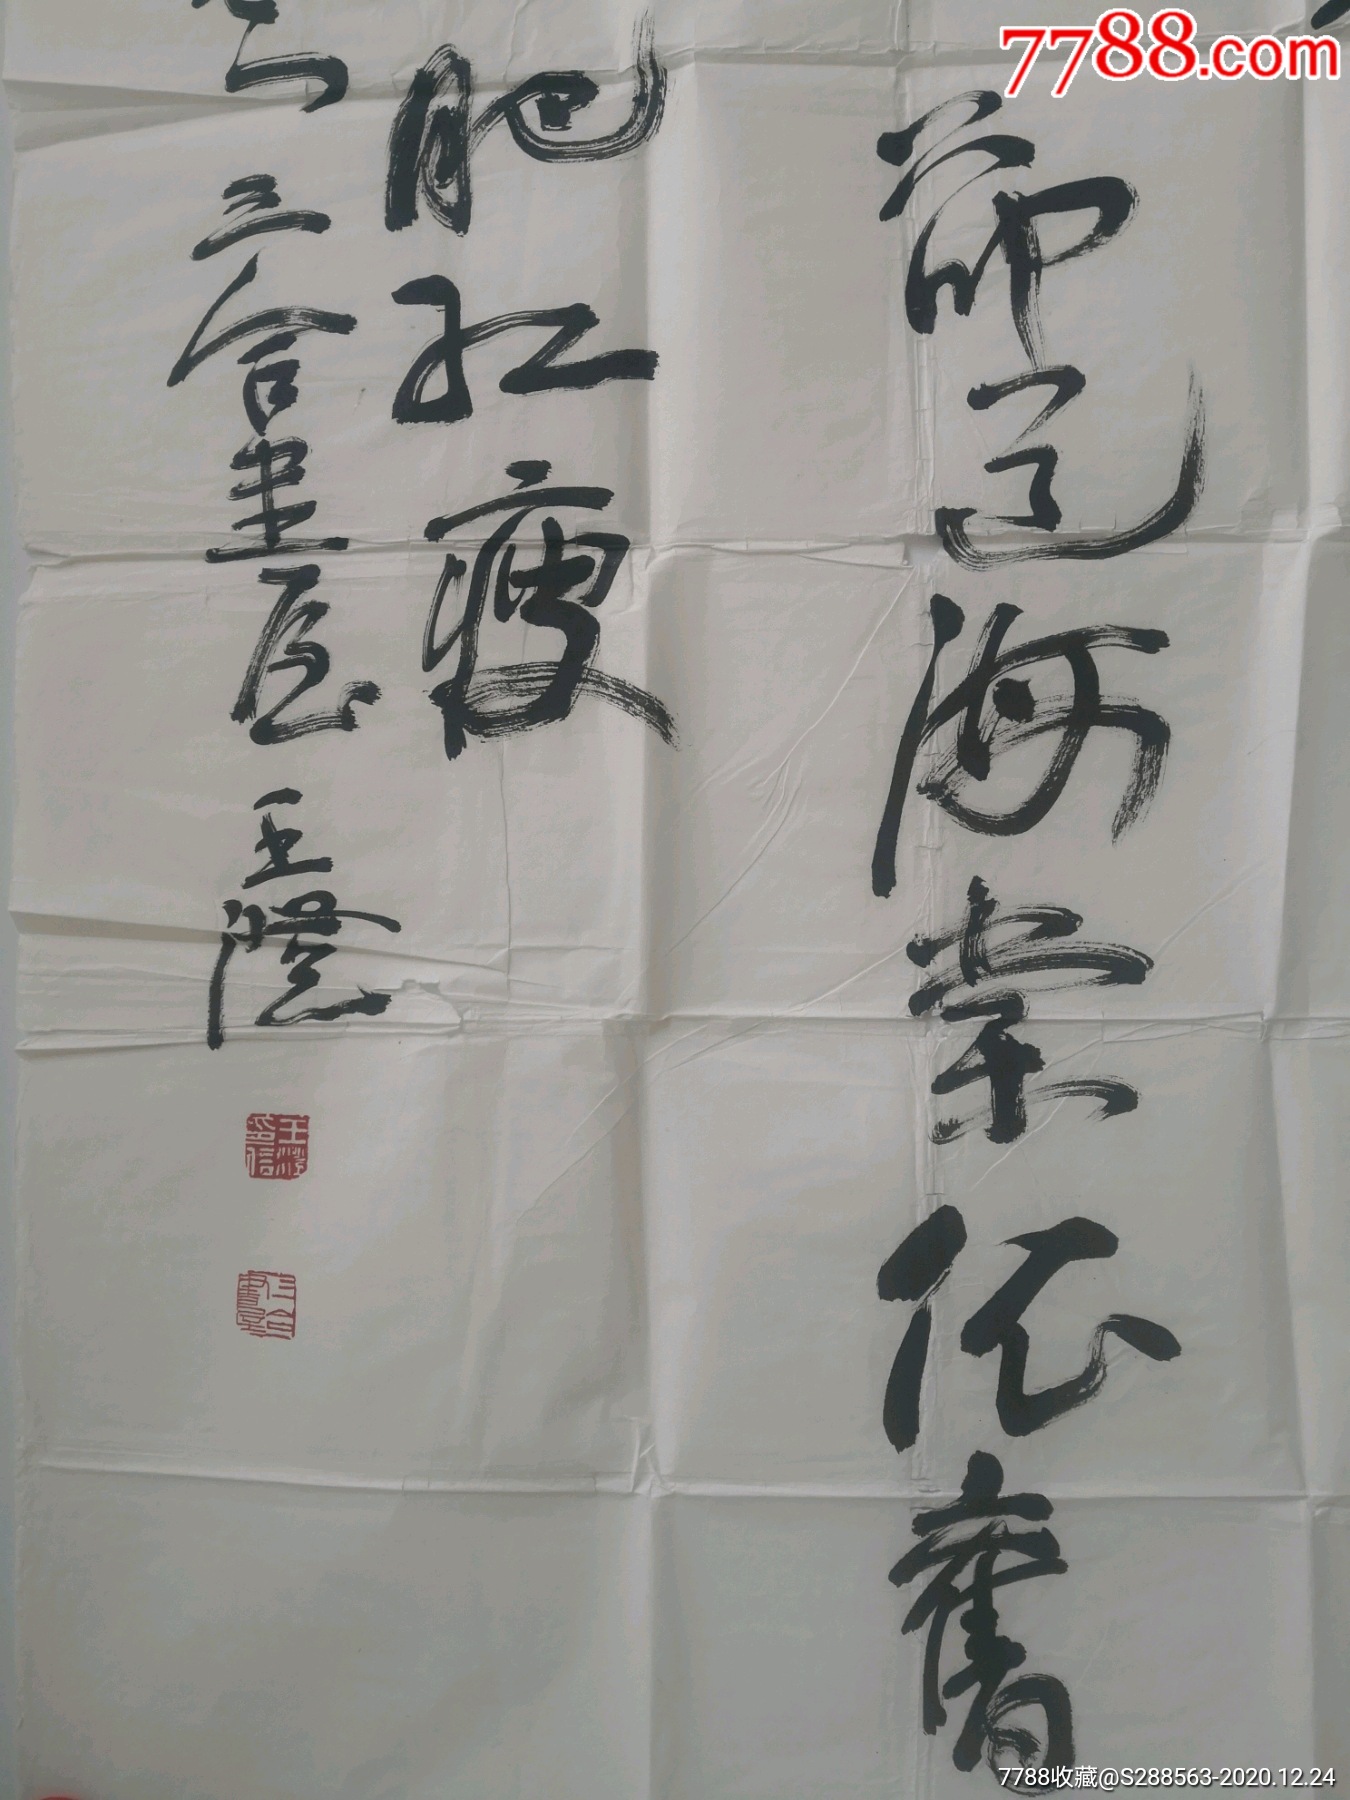 7788.com
卻道海棠依舊
肥紅瘦
三合書屋 王澄
王澄印信
三合書屋
7788收藏@S288563-2020.12.24